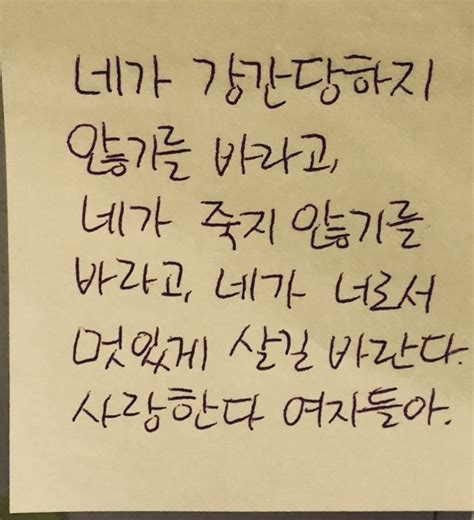 네가 강간당하지
않기를 바라고,
네가 죽지 않기를
바라고, 네가 너로서
멋있게 살길 바란다.
사랑한다 여자들아.